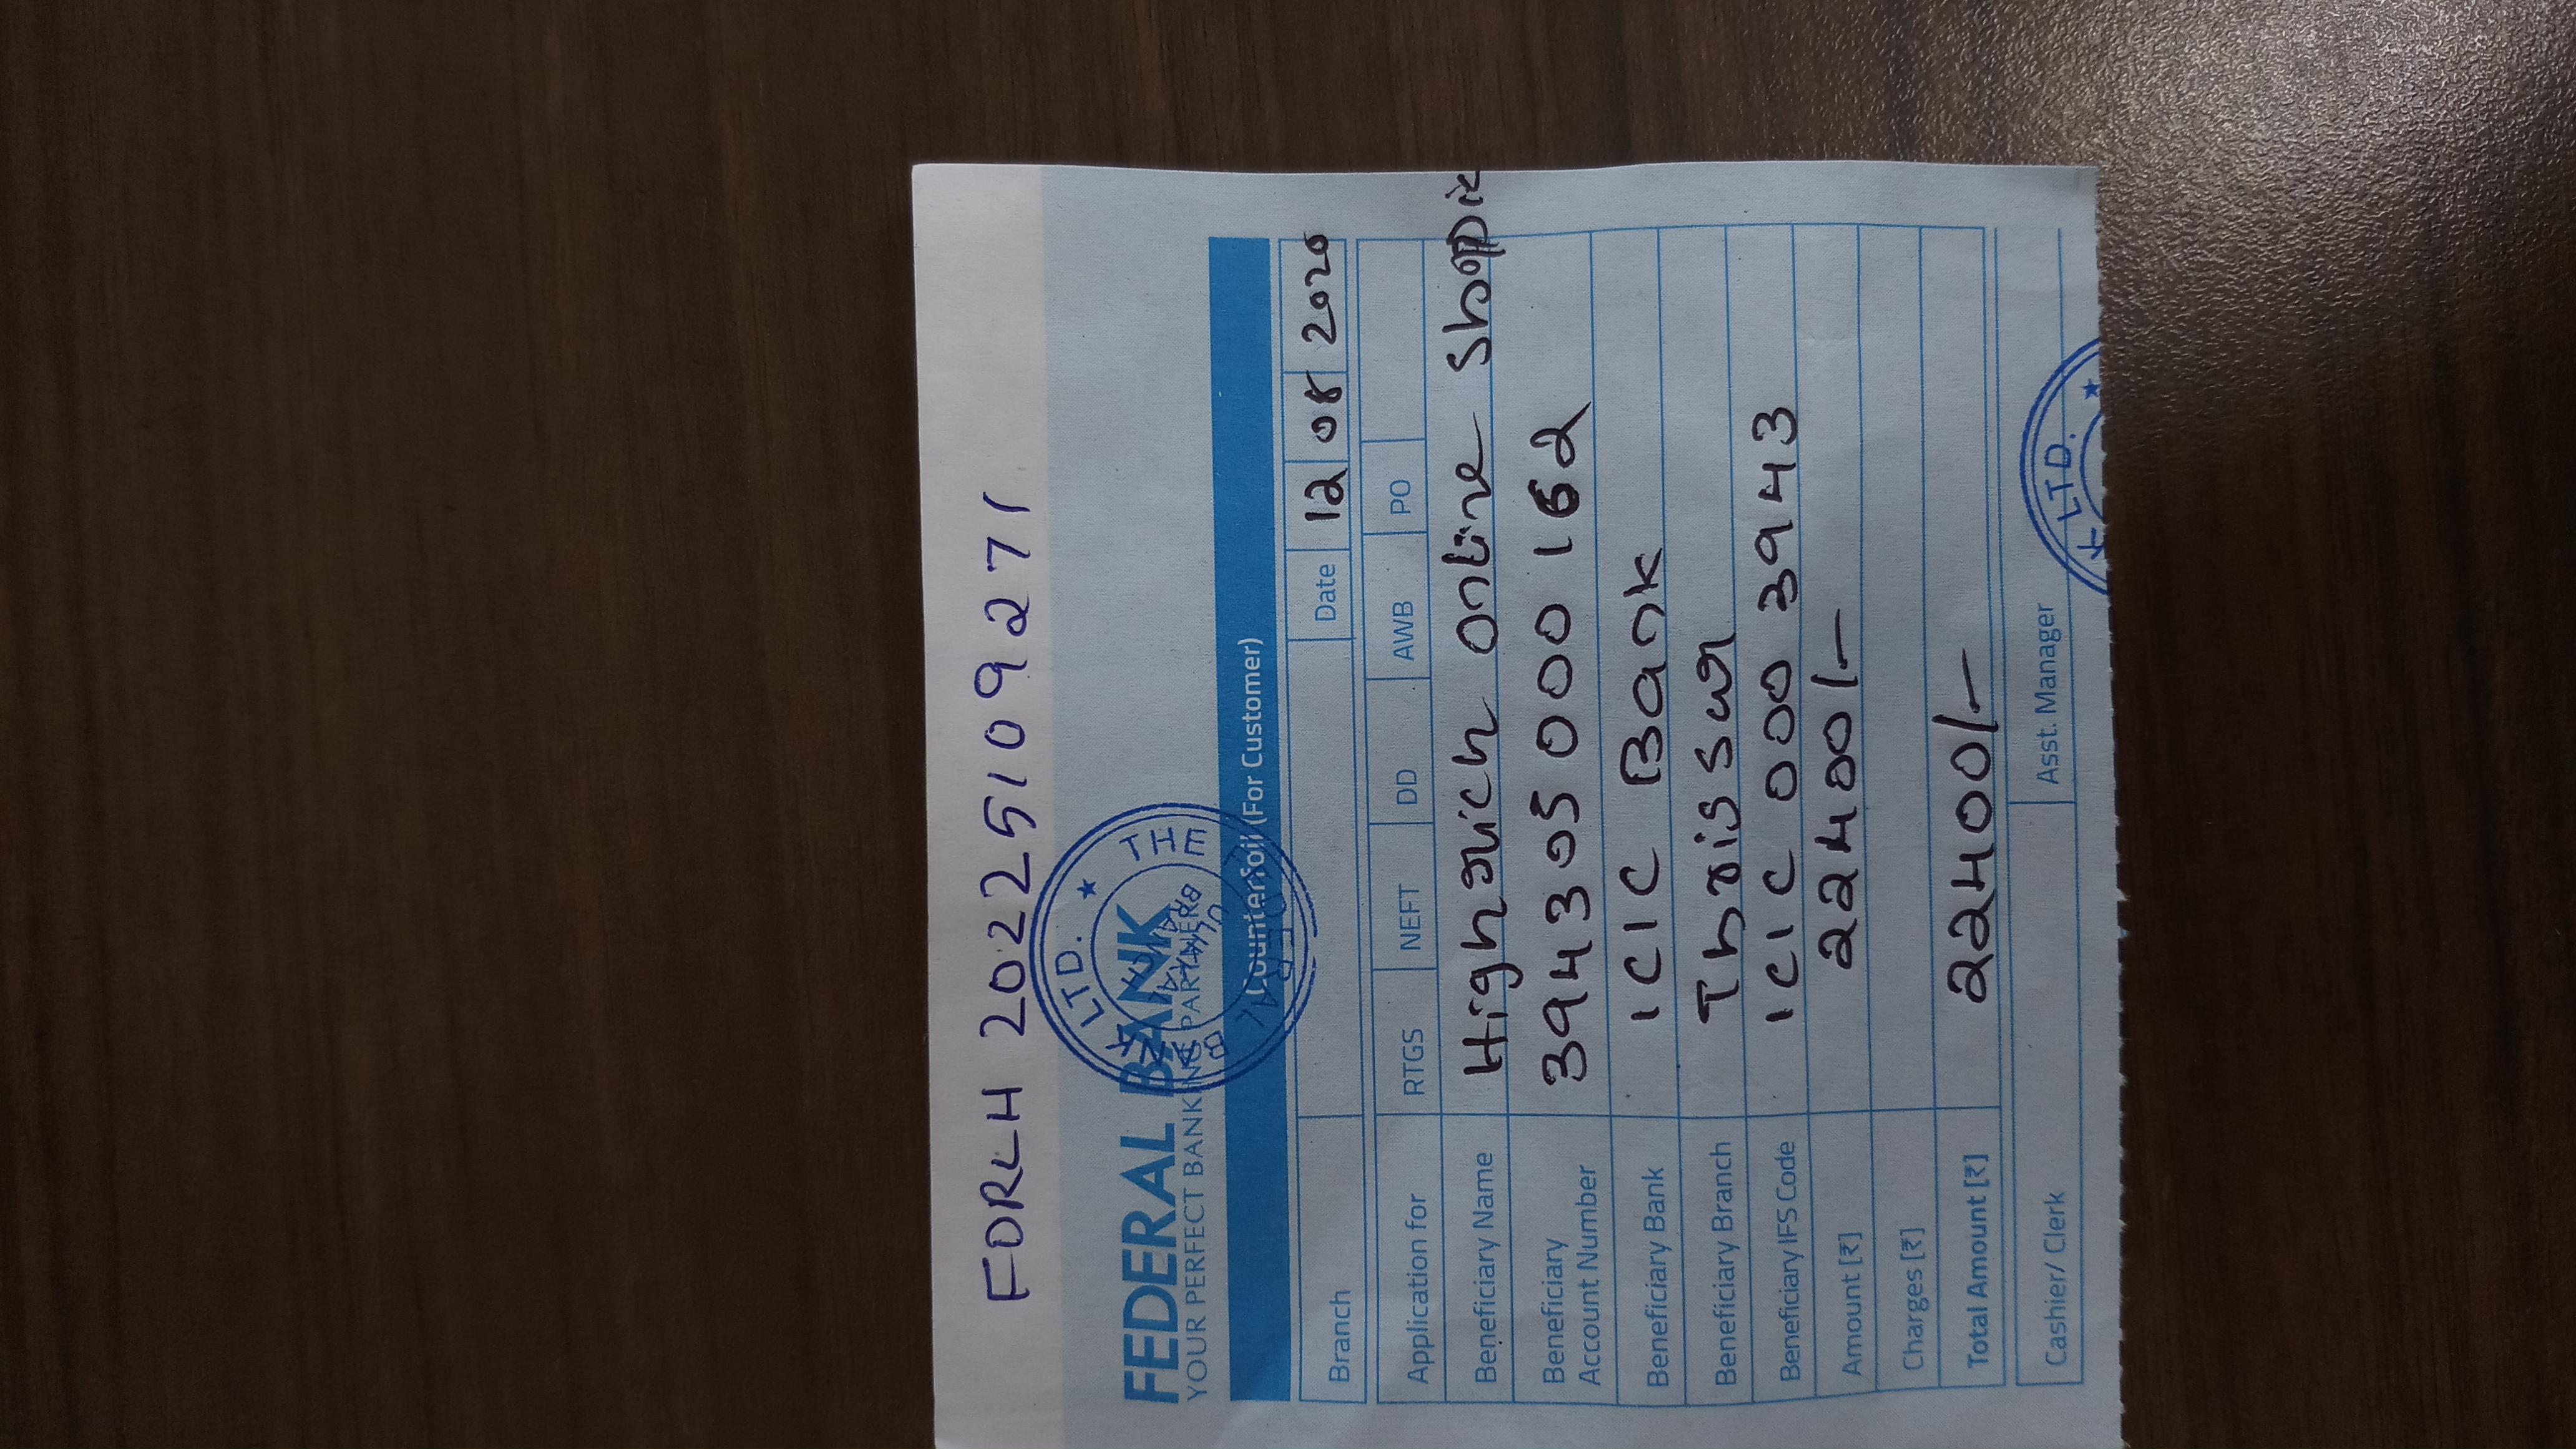 FDRLH 20225109271
FEDERAL BANK
YOUR PERFECT BANKING PARTNER
BANK LTD. ★ THE FEDERAL
BRANCH
Counterfoil (For Customer)
Branch Date 12 08 2020
Application for RTGS NEFT DD AWB PO
Beneficiary Name Highrich Online Shoppie
Beneficiary
Account Number 394305000162
Beneficiary Bank ICIC Bank
Beneficiary Branch Thrissur
Beneficiary IFS Code ICIC 000 3943
Amount [₹] 22400/-
Charges [₹]
Total Amount [₹] 22400/-
Cashier/ Clerk Asst. Manager
K LTD. ★